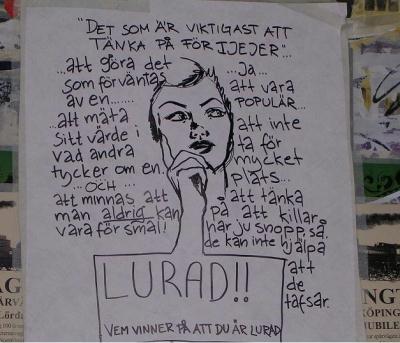 "DET SOM ÄR VIKTIGAST ATT
TÄNKA PÅ FÖR TJEJER"...
...att göra det
som förväntas
av en......
...att mäta
sitt värde i
vad andra
tycker om en.
...OCH...
att minnas att
man aldrig kan
vara för smal!
...Ja...
att vara
POPULÄR...
att inte
ta för
mycket
plats...
att tänka
på att killar
har ju snopp, så
de kan inte hjälpa
att
de
tafsar.
LURAD!!
VEM VINNER PÅ ATT DU ÄR LURAD
Lörda
NGT
KÖPING
JUBILE